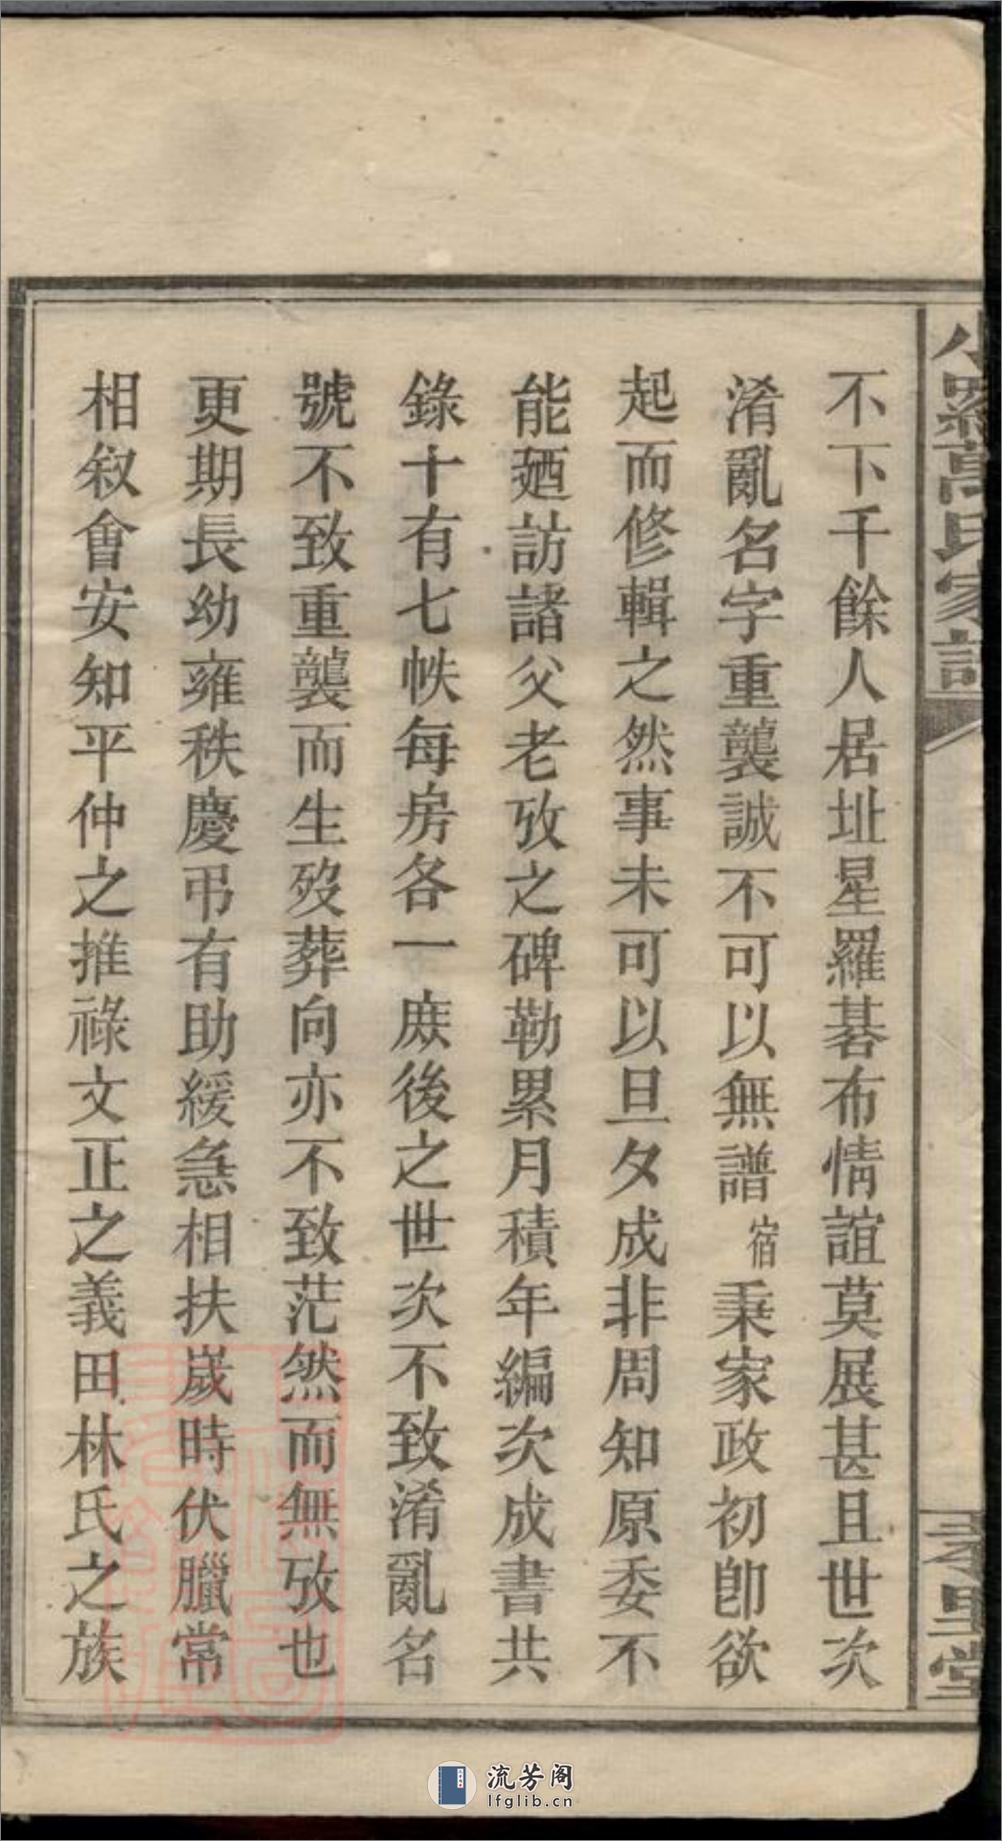 不下千餘人居址星羅碁布情誼莫展甚且世次
淆亂名字重襲誠不可以無譜宿秉家政初卽欲
起而修輯之然事未可以旦夕成非周知原委不
能廼訪諸父老攷之碑勒累月積年編次成書共
錄十有七帙每房各一庻後之世次不致淆亂名
號不致重襲而生歿葬向亦不致茫然而無攷也
更期長幼雍秩慶弔有助緩急相扶嵗時伏臘常
相叙會安知平仲之推祿文正之義田林氏之族
流芳阁
lfglib.cn